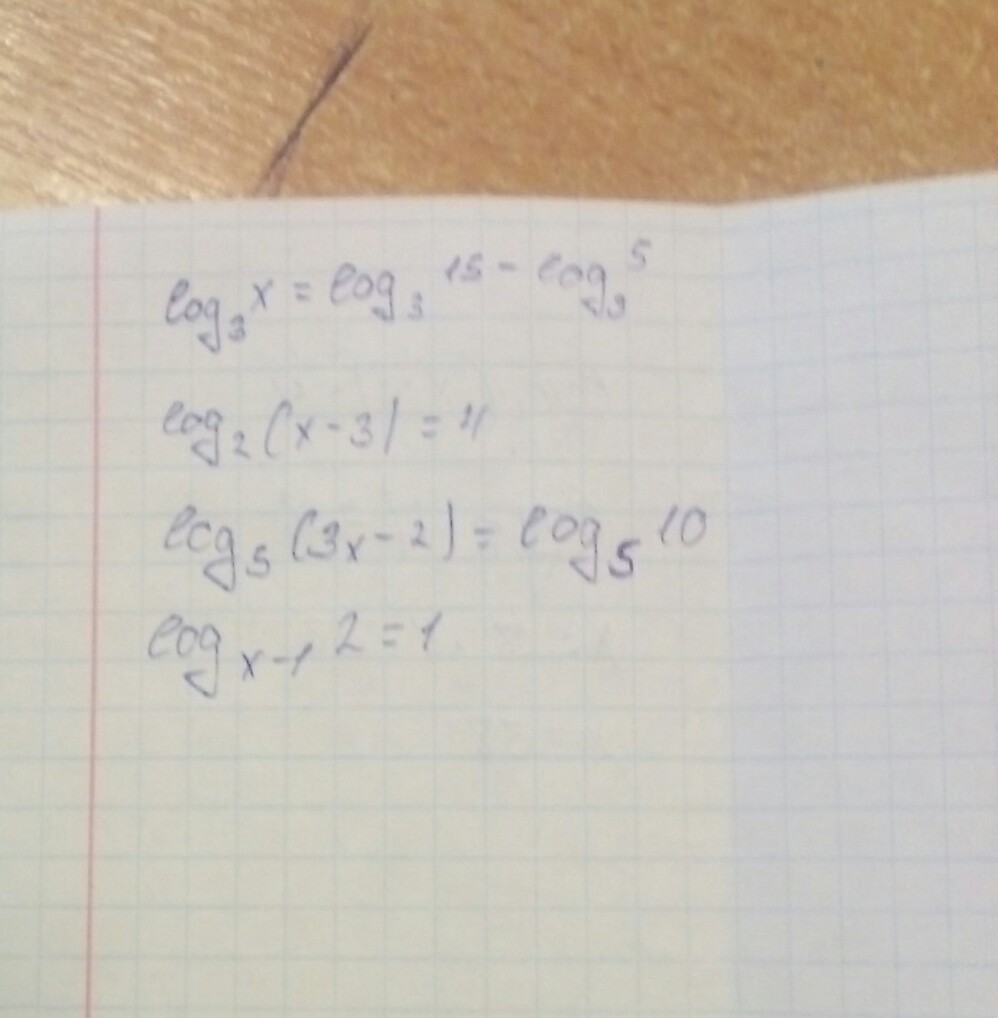 log₃ x = log₃ 15 - log₃ 5
log₂ (x-3) = 4
log₅ (3x-2) = log₅ 10
log ₓ₋₁ 2 = 1